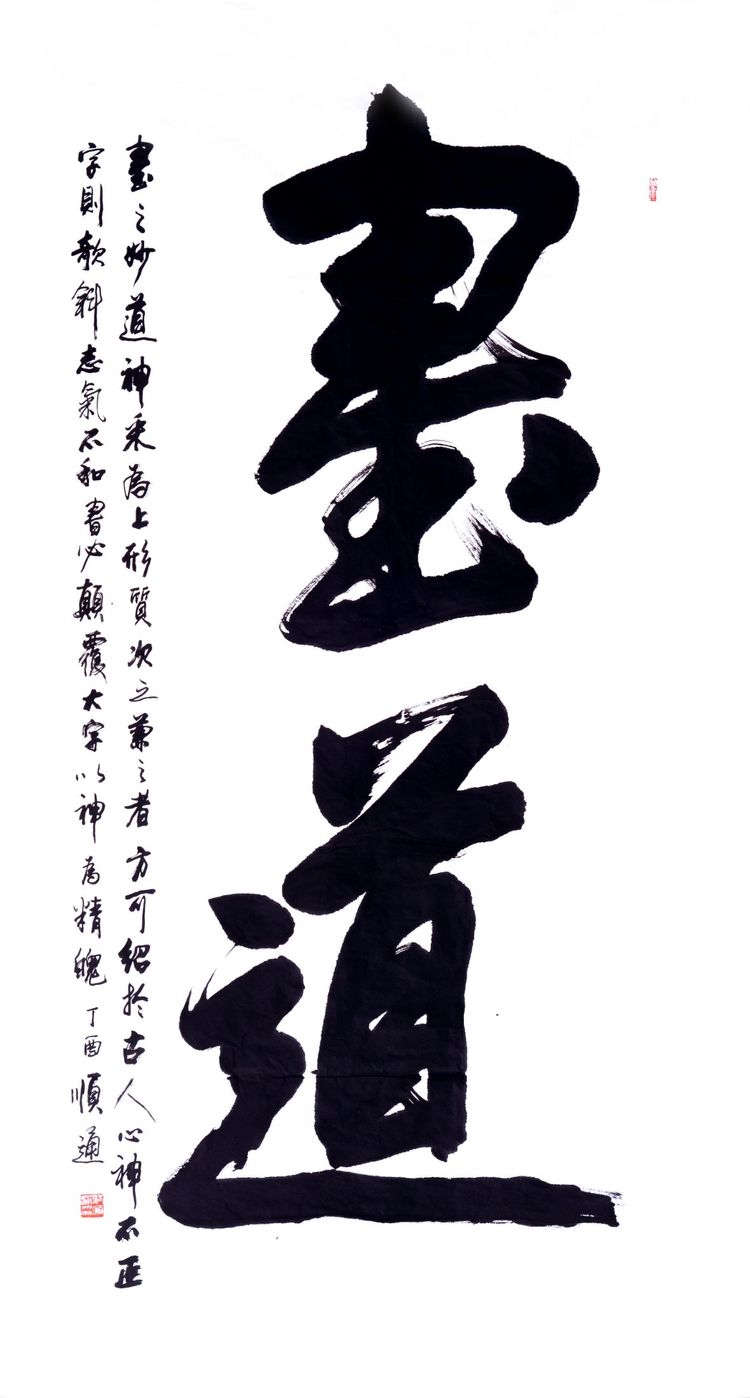 書道
書之妙道神采為上形質次之兼之者方可紹於古人心神不正
字則欹斜志氣不和書必顛覆大字以神為精魄 丁酉 順通